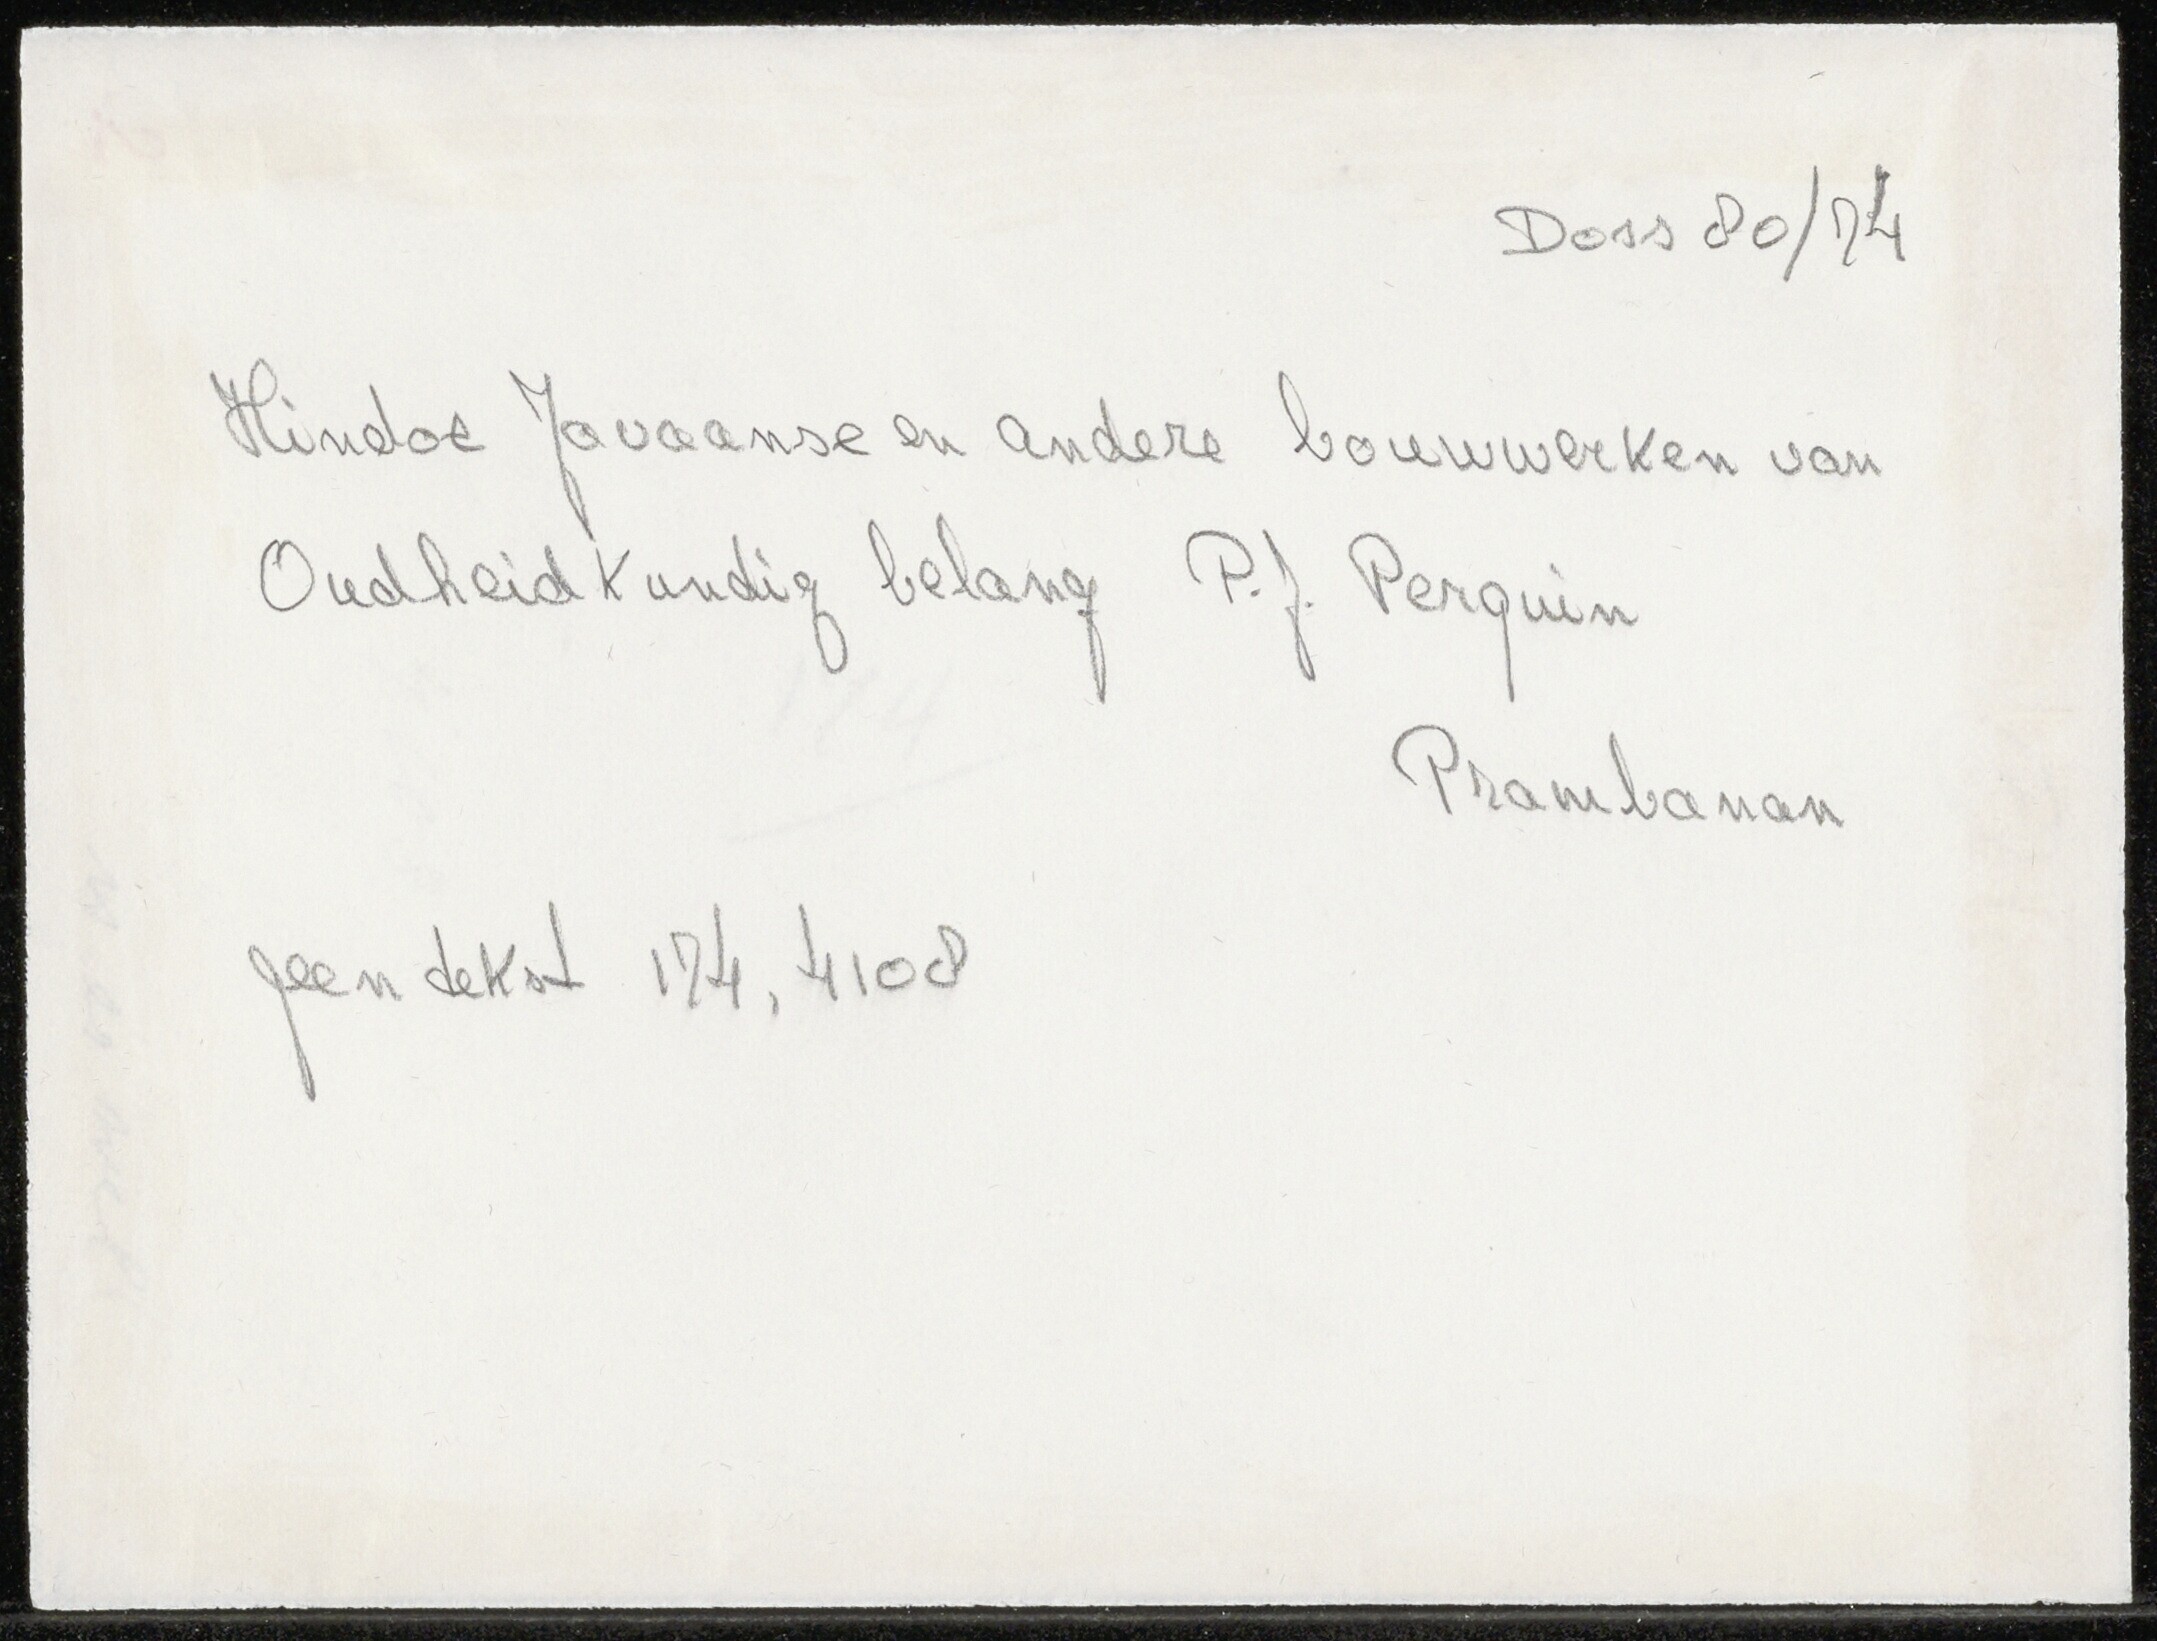 Doss 80/74
Hindoe Javaanse en andere bouwwerken van
Oudheidkundig belang P.J. Perquin
Prambanan
geen tekst 174, 4108
174